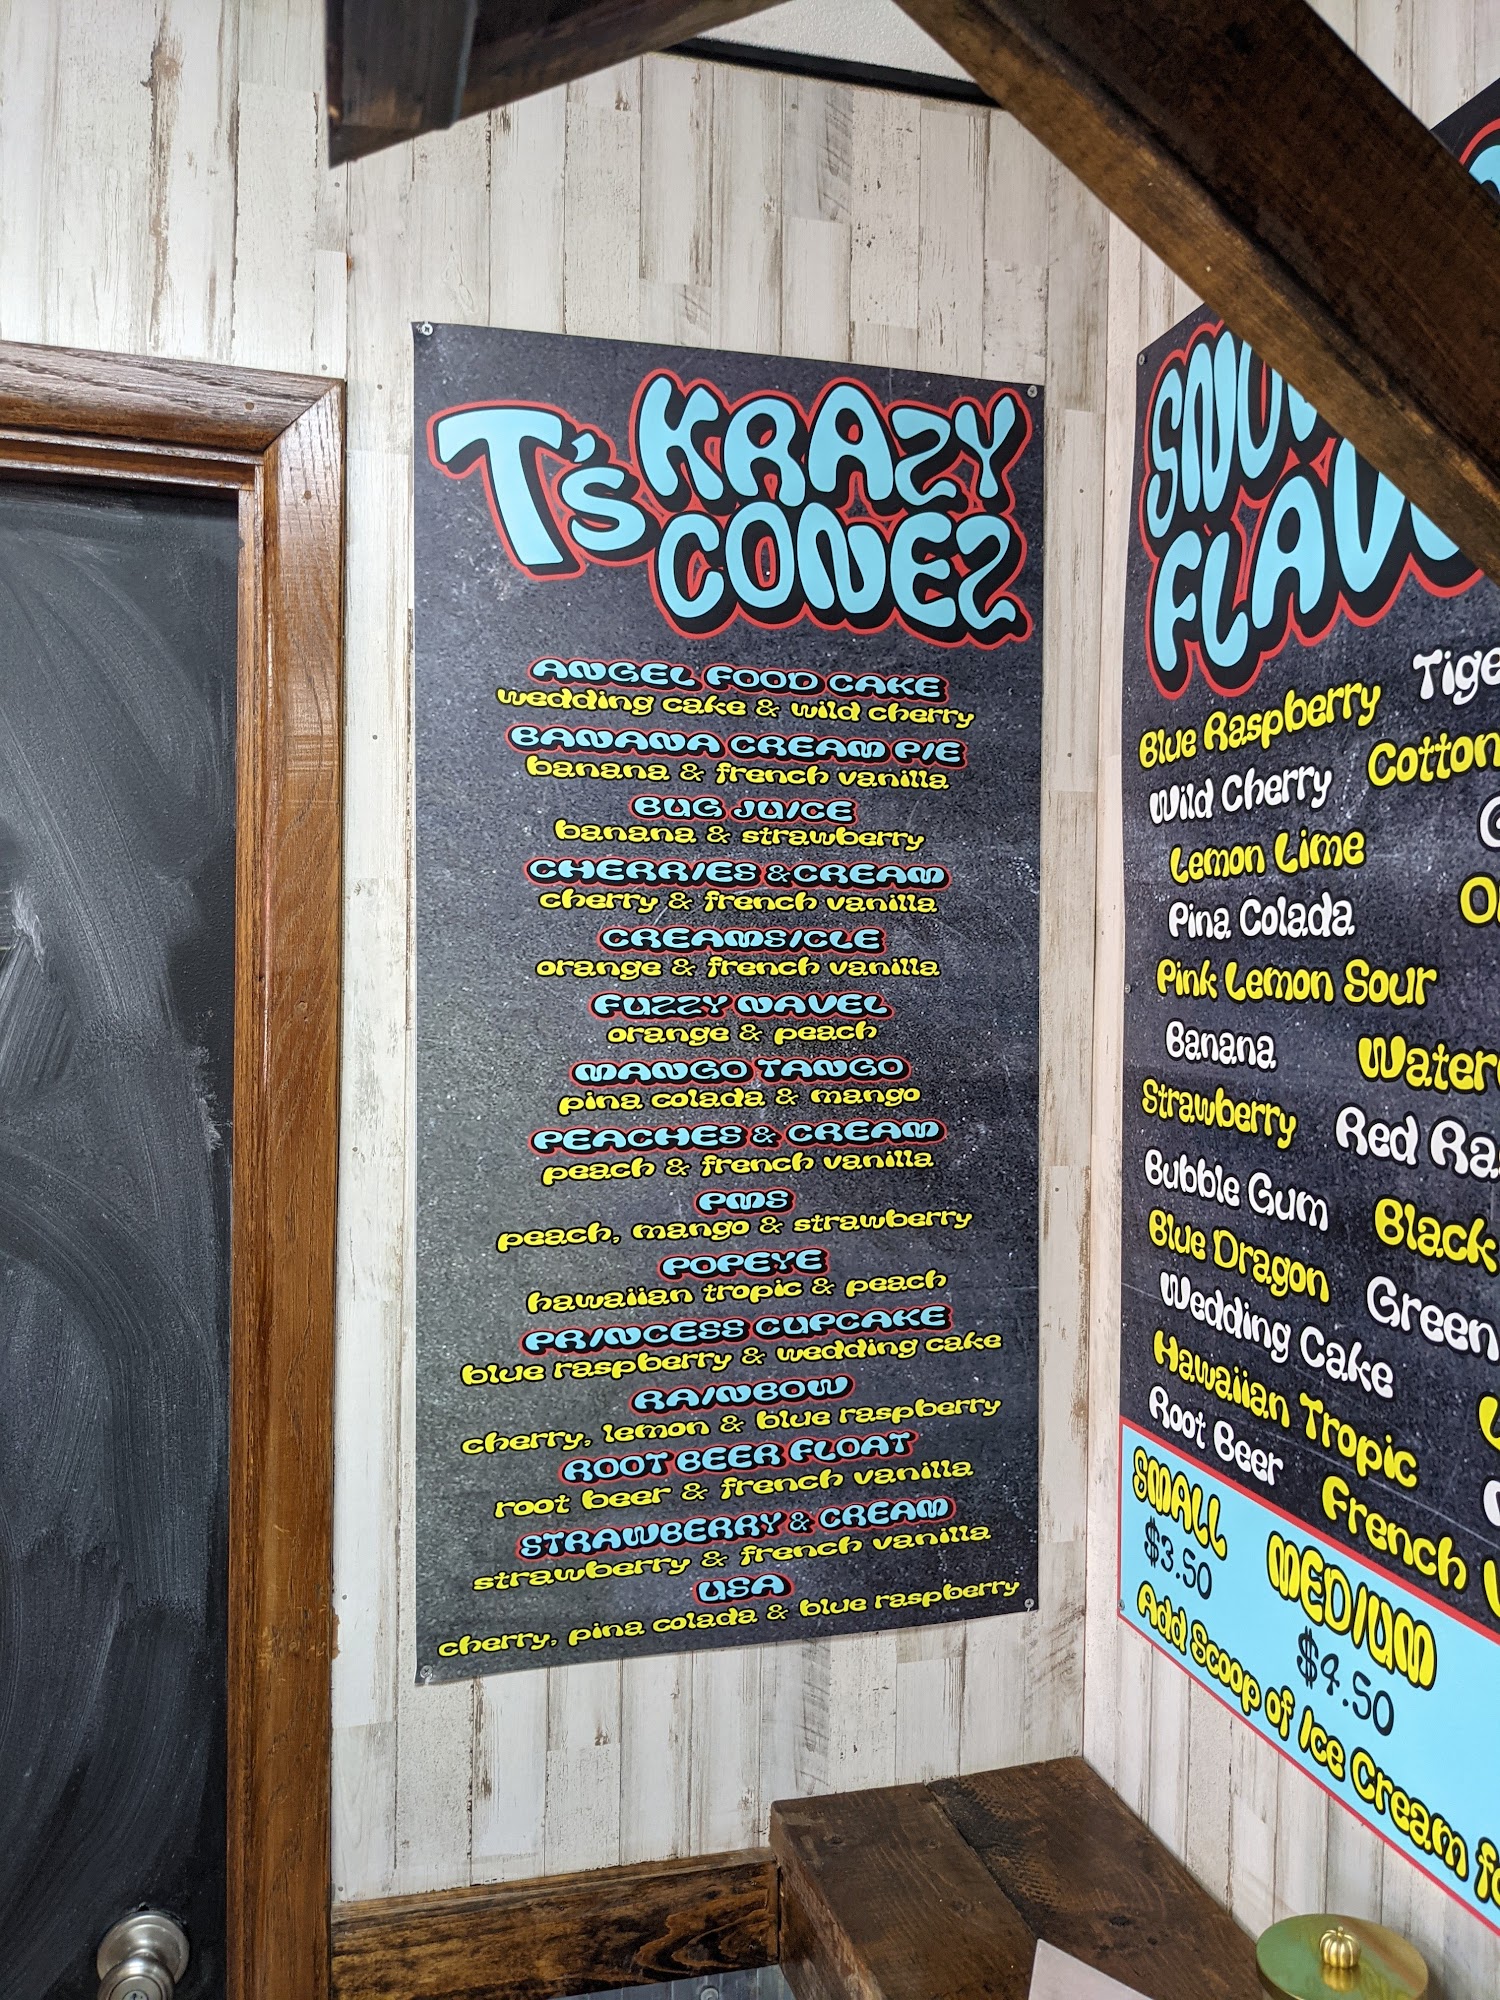 T's KRAZY
CONEZ
ANGEL FOOD CAKE
wedding cake & wild cherry
BANANA CREAM PIE
banana & french vanilla
BUG JUICE
banana & strawberry
CHERRIES & CREAM
cherry & french vanilla
CREAMSICLE
orange & french vanilla
FUZZY NAVEL
orange & peach
MANGO TANGO
pina colada & mango
PEACHES & CREAM
peach & french vanilla
PMS
peach, mango & strawberry
POPEYE
hawaiian tropic & peach
PRINCESS CUPCAKE
blue raspberry & wedding cake
RAINBOW
cherry, lemon & blue raspberry
ROOT BEER FLOAT
root beer & french vanilla
STRAWBERRY & CREAM
strawberry & french vanilla
USA
cherry, pina colada & blue raspberry
Blue Raspberry
Wild Cherry Cotton
Lemon Lime
Pina Colada
Pink Lemon Sour
Banana
Strawberry Red
Bubble Gum Black
Blue Dragon Green
Wedding Cake
Hawaiian Tropic
Root Beer French
SMALL MEDIUM
$3.50 $4.50
Add Scoop of Ice Cream